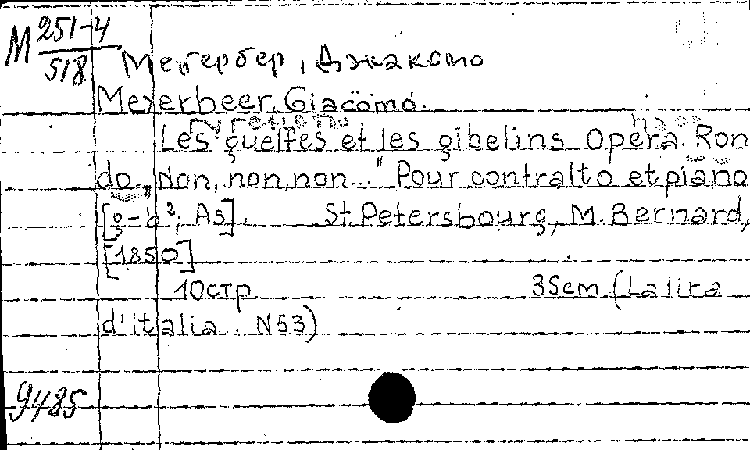 М 251-4
518
Мейербер, Джакомо
Meyerbeer, Giacomo.
Les guelfes et les gibelins. Opera. Ron
do „Non, non, non..." Pour contralto et piano
[g-b², As]. St. Petersbourg, M. Bernard,
[1850]
10 стр 35cm (La lira
d'italia. N53)
9485